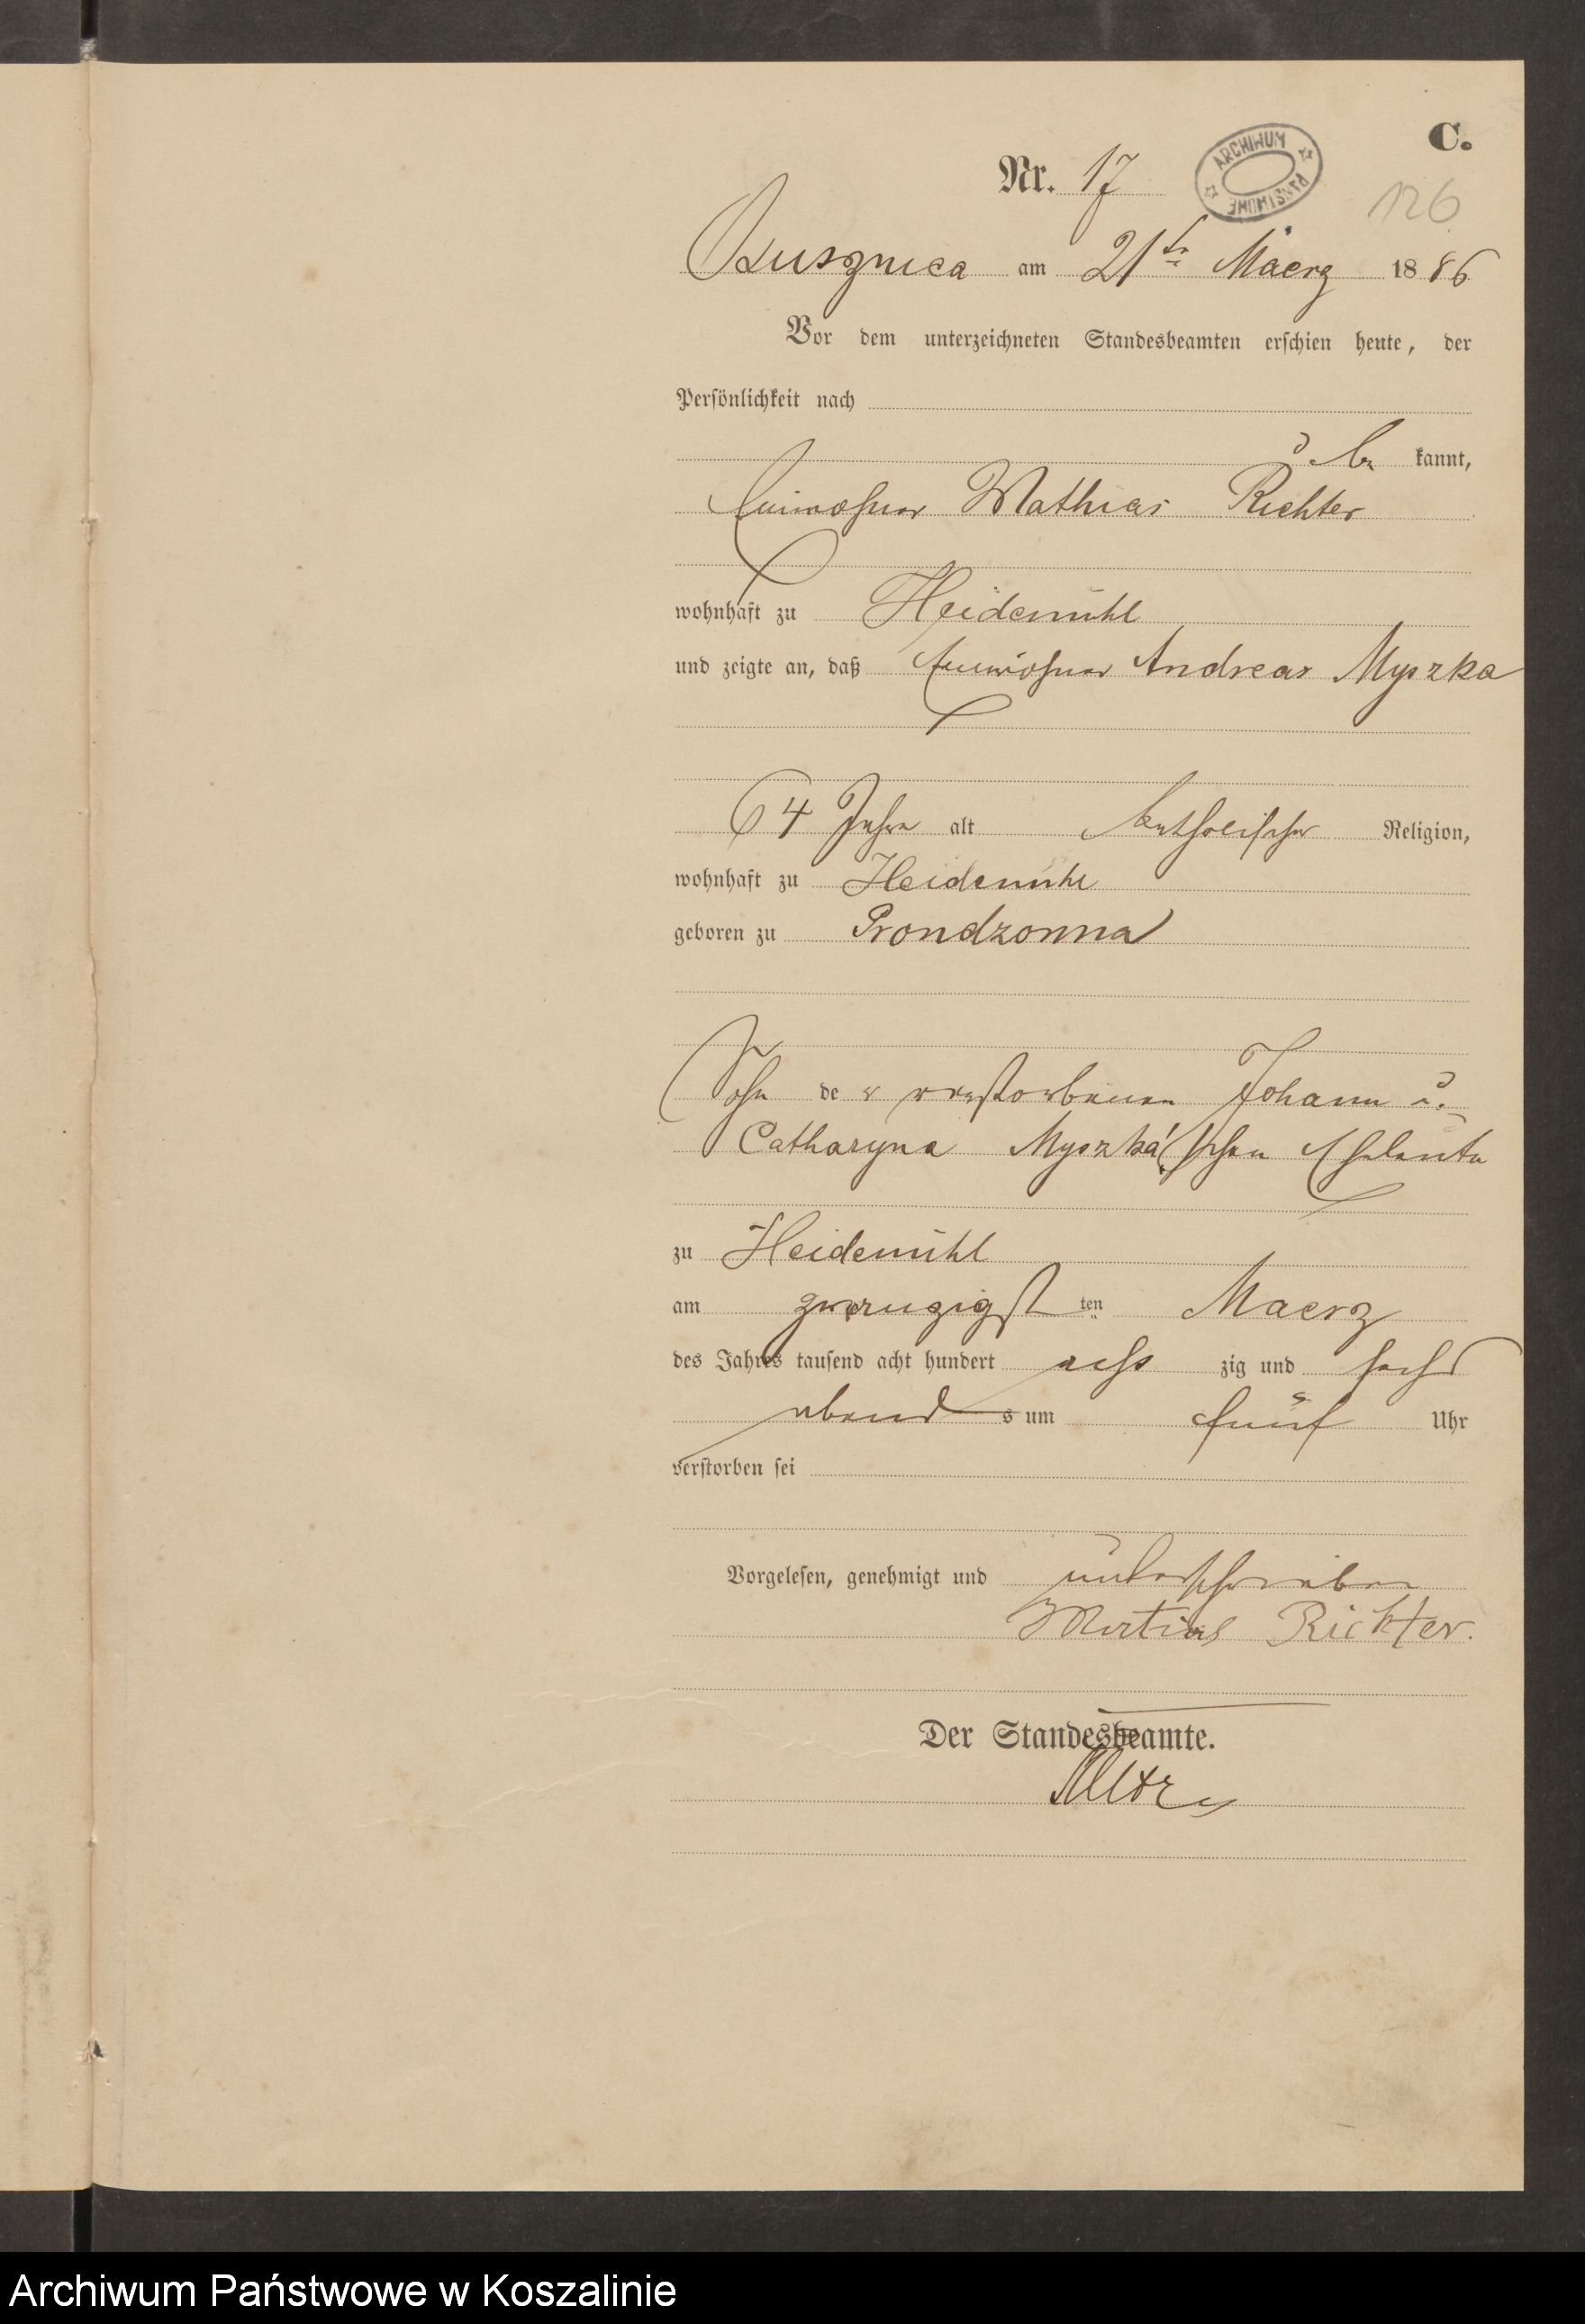 C.
Nr. 17
ARCHIWUM PAŃSTWOWE
126
Kusznica am 21ten Maerz 1886
Vor dem unterzeichneten Standesbeamten erschien heute, der
Persönlichkeit nach
be kannt,
Einwohner Mathias Richter
wohnhaft zu Heidemühl
und zeigte an, daß Einwohner Andreas Myszka
64 Jahre alt katholischer Religion,
wohnhaft zu Heidemühl
geboren zu Prondzonna
Sohn der verstorbenen Johann u.
Catharyna Myszka'schen Eheleute
zu Heidemühl
am zwanzigsten Maerz
des Jahres tausend acht hundert acht zig und sechs
abends um fünf Uhr
verstorben sei
Vorgelesen, genehmigt und unterschrieben
Martias Richter.
Der Standesbeamte.
Archiwum Państwowe w Koszalinie